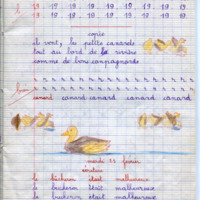 19 19 19 19 19 19 19 19
19 19 19 19 19 19 19 19
copie
il vont, les petits canards
tout au bord de la rivière
comme de bons campagnards
canard canard canard canard canard
mardi février
le bûcheron était malheureux
le bucheron était malheureux
le bucheron était malheureux